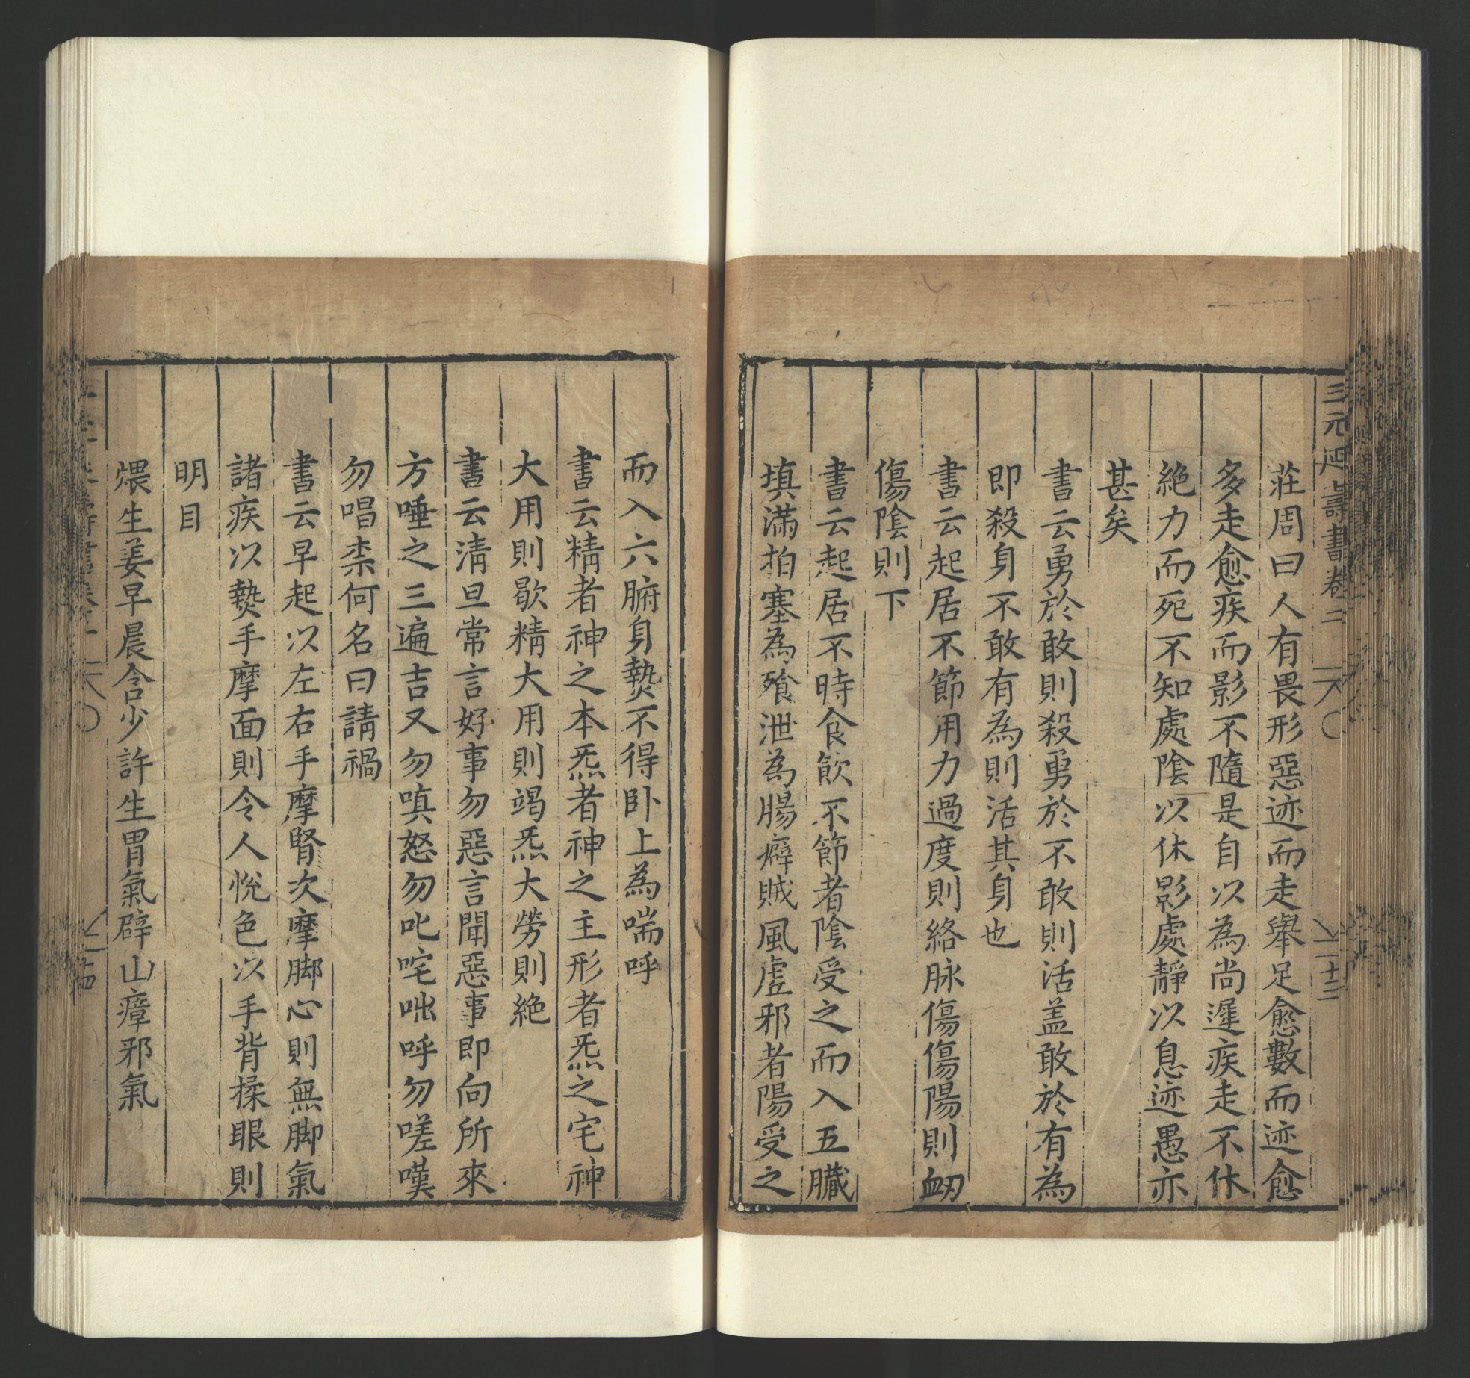 三元延壽書卷二
莊周曰人有畏形惡迹而走舉足愈數而迹愈
多走愈疾而影不隨是自以為尚遲疾走不休
絕力而死不知處陰以休影處靜以息迹愚亦
甚矣
書云勇於敢則殺勇於不敢則活盖敢於有為
即殺身不敢有為則活其身也
書云起居不節用力過度則絡脉傷傷陽則衂
傷陰則下
書云起居不時食飲不節者陰受之而入五臟
填滿拍塞為飱泄為腸癖賊風虛邪者陽受之
而入六腑身𤍠不得卧上為喘呼
書云精者神之本炁者神之主形者炁之宅神
大用則歇精大用則竭炁大勞則絶
書云清旦常言好事勿惡言聞惡事即向所來
方唾之三遍吉又勿嗔怒勿叱咤咄呼勿嗟嘆
勿唱柰何名曰請禍
書云早起以左右手摩腎次摩脚心則無脚氣
諸疾以𤍠手摩面則令人悅色以手背揉眼則
明目
煨生姜早晨含少許生胃氣辟山瘴邪氣